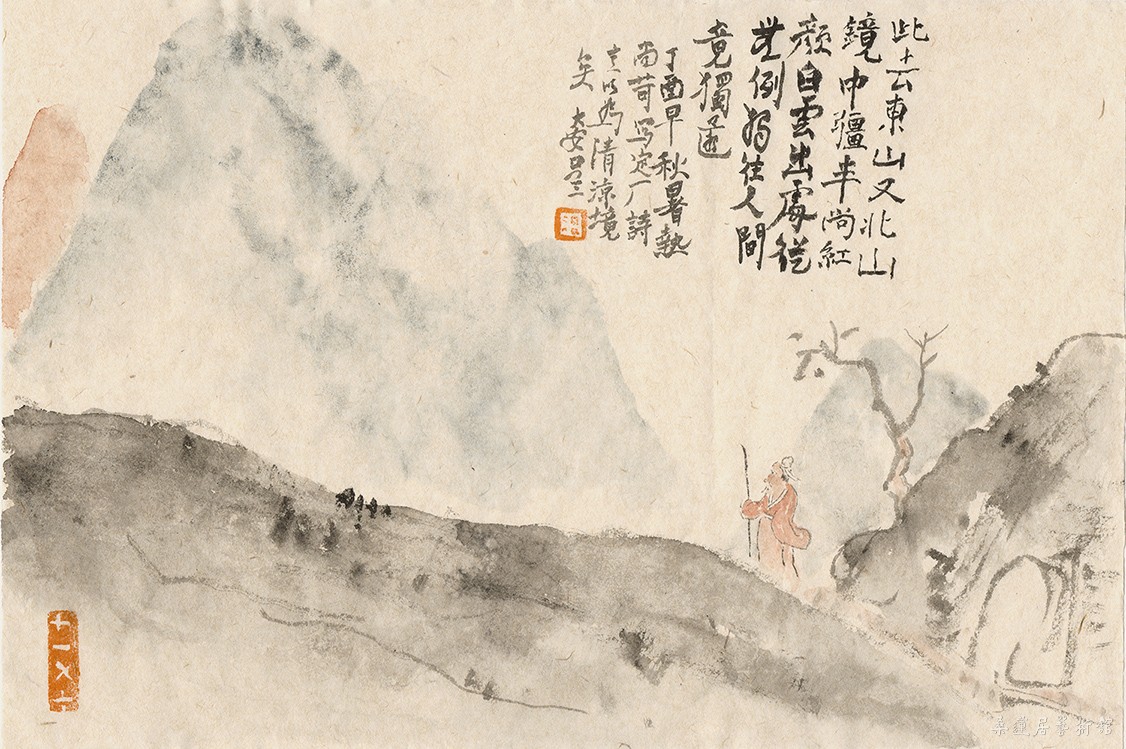 此去東山又北山
鏡中彊半尚紅
顏白雲出處從
無例獨往人間
竟獨還
丁酉早秋暑熱
尚苛寫定厂詩
意以為清涼境
矣
桑蓮居藝術館